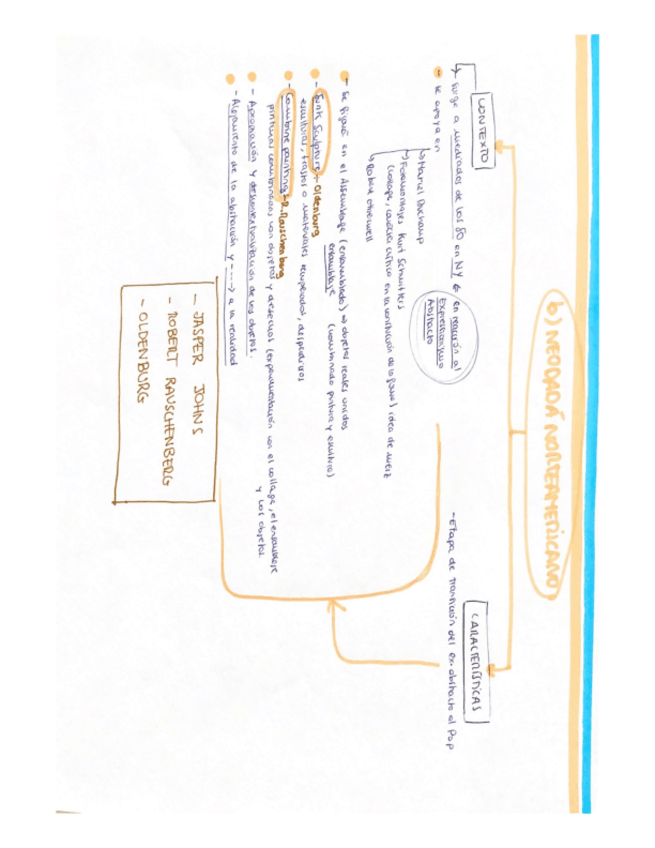 b) NEODADÁ NORTEAMERICANO
CONTEXTO
Surge a mediados de los 50 en NY en reacción al
Expresionismo
Abstracto
Se apoya en
Marcel Duchamp
Fotomontajes Kurt Schwitters
(collage, carácter crítico en la construcción de la
idea de merz
Robert
Se figuró en el Assemblage (ensamblado) → objetos reales unidos
ensamblaje (combinando pintura y escultura)
- Junk Sculpture - Oldenburg
esculturas, trastos o materiales recuperados, desperdicios
- Combine painting - R. Rauschenberg
pinturas combinadas con objetos y desechos (experimentación con el collage, el ensamblaje
y los objetos
- Apropiación y descontextualización de los objetos.
- Alejamiento de la abstracción y ----> a la realidad
CARACTERÍSTICAS
- Etapa de transición del ex. abstracto al Pop
- JASPER JOHNS
- ROBERT RAUSCHENBERG
- OLDENBURG